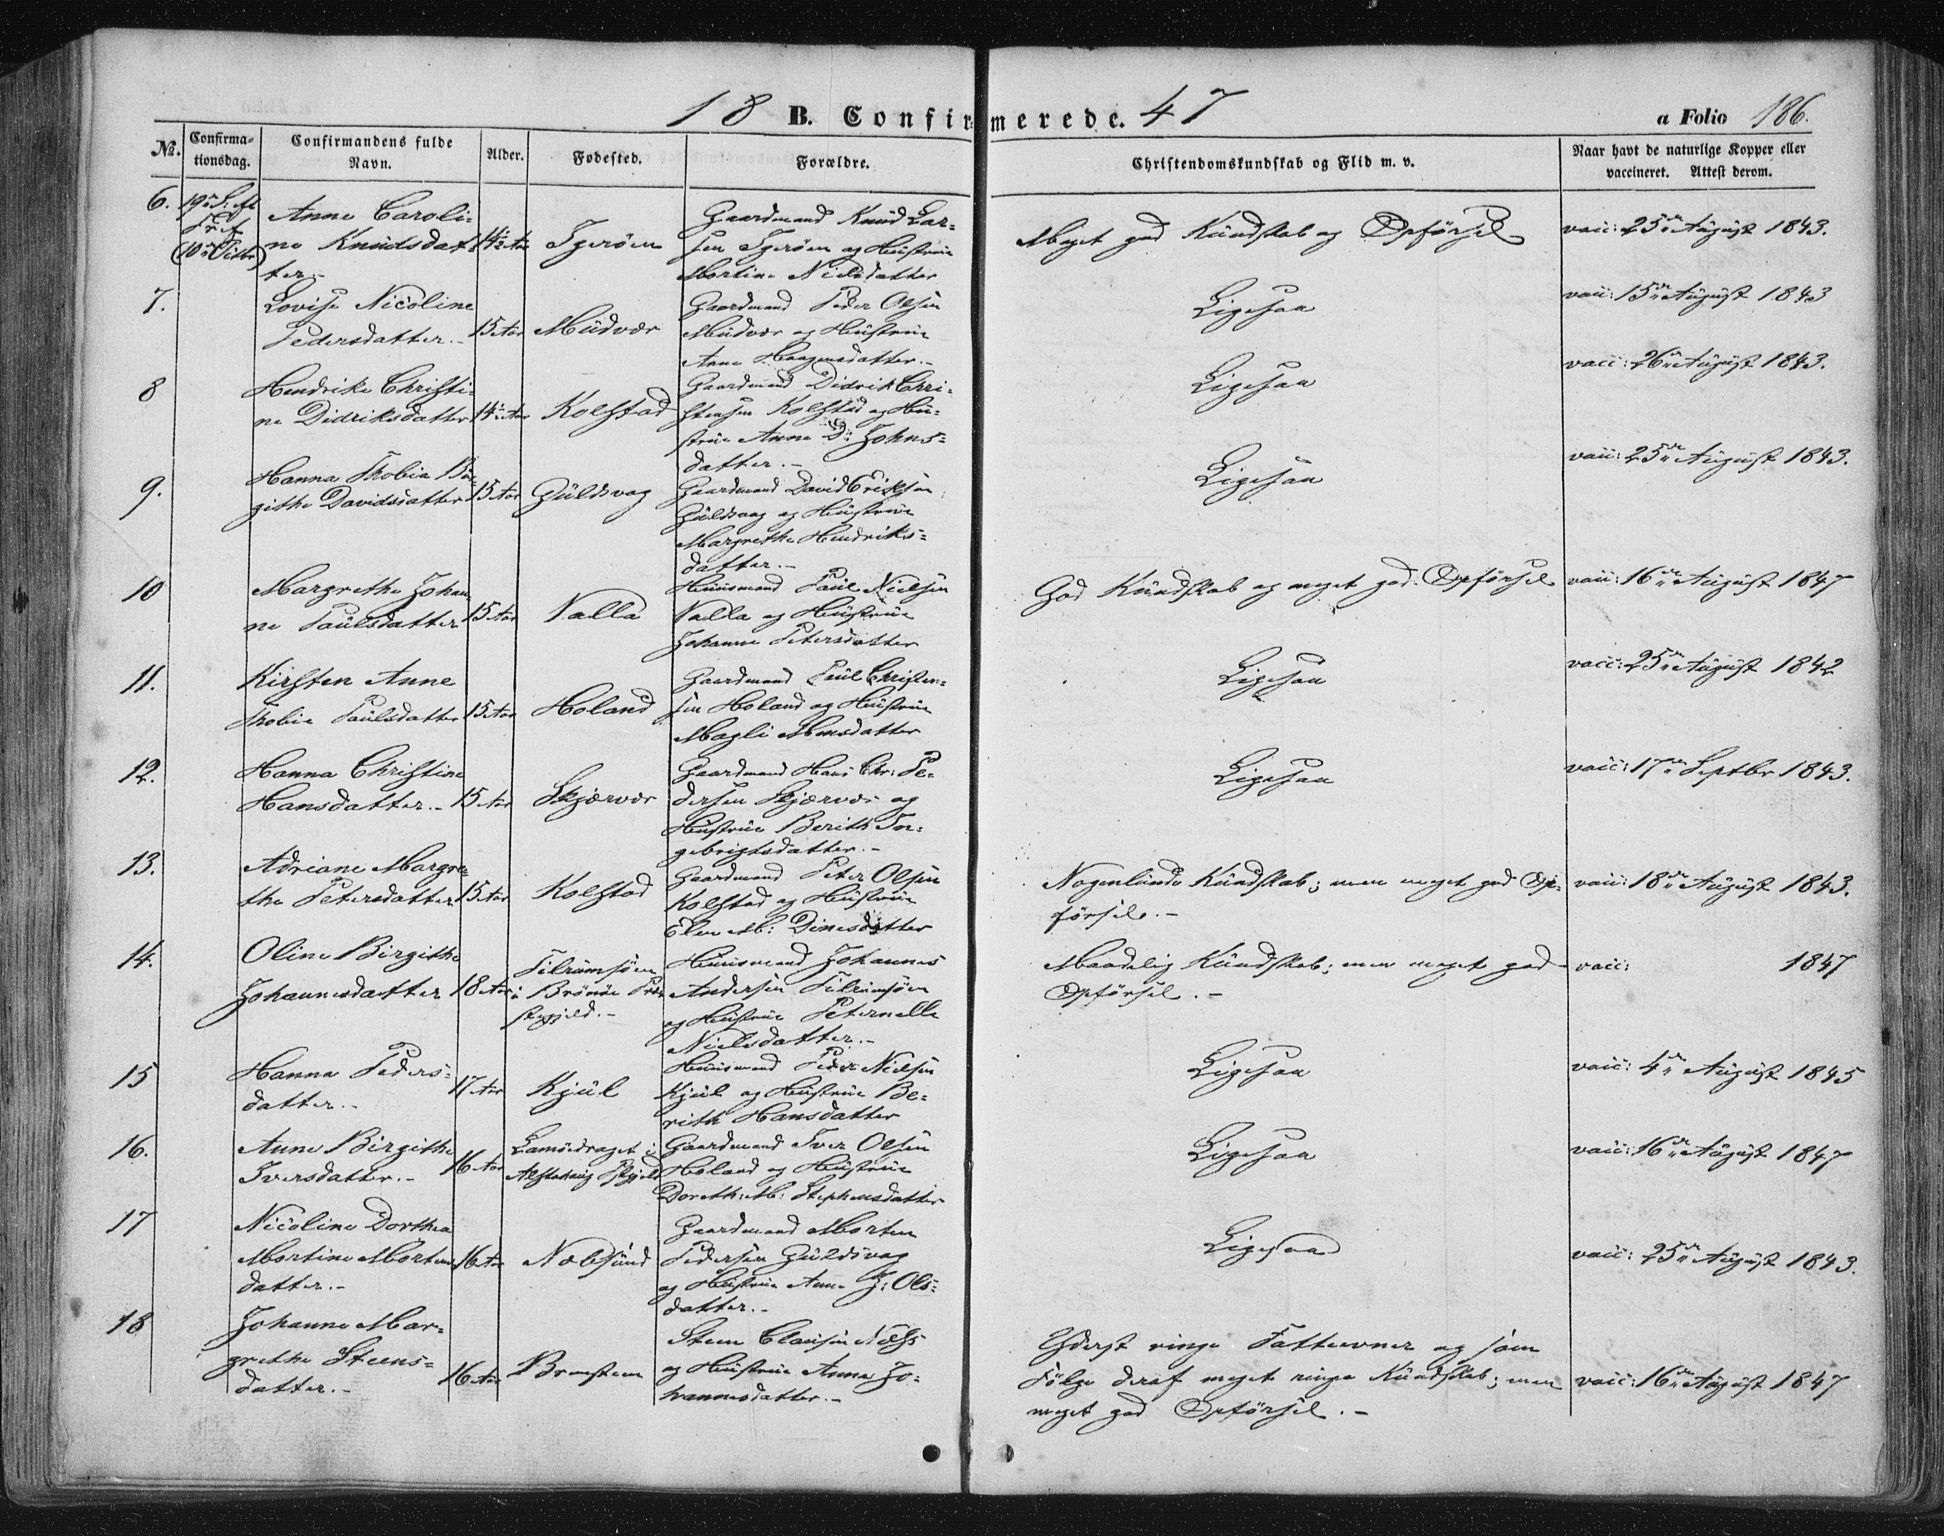 18 B. Confirmerede. 47
a Folio 186.
No.
Confirma-
tionsdag.
Confirmandens fulde
Navn.
Alder.
Fødested.
Forældre.
Christendomskundskab og Flid m. v.
Naar havt de naturlige Kopper eller
vaccineret. Attest derom.
6. 19de S: eft
Tref
Anne Caroli-
ne Knudsdat-
ter.-
14½ Aar
Igerøen
Gaardmand Knud Lar-
sen Igerøen og Hustrue
Martine Nielsdatter
Meget god Kundskab og Opførsel
vacc: 25de August 1843.
7.
Lovise Nicoline
Pedersdatter.-
15 Aar
Mudvær
Gaardmand Peder Olsen
Mudvær og Hustrue
Anne Haagensdatter.-
Ligesaa
vacc: 15de August 1843
8
Hendrike Christi-
ne Didriksdatter
14½ Aar
Kolstad
Gaardmand Didrik Chri-
stensen Kolstad og Hu-
strue Anne D: Johns-
datter.-
Ligesaa
vacc: 26de August 1843.
9.
Hanna Thobia Bir-
githe Davidsdatter
15 Aar
Guldsvag
Gaardmand David Eriksen
Guldsvag og Hustrue
Margrethe Hendriks-
datter.-
Ligesaa
vacc: 25de August 1843.
10
Margrethe Johan
ne Paulsdatter
15 Aar
Valla
Huusmand Paul Nielsen
Valla og Hustrue
Johanne Petersdatter
God Kundskab og meget god Opførsel
vacc: 16de August 1847
11.
Kirsten Anne
Thobia Paulsdatter
15 Aar
Holand
Gaardmand Paul Christen-
sen Holand og Hustrue
Magli Monsdatter
Ligesaa
vacc: 25de August 1842
12.
Hanna Christine
Hansdatter.-
15 Aar
Skjærvær
Gaardmand Hans Chr: Pe-
dersen Skjærvær og
Hustrue Berith In-
gebrigtsdatter.-
Ligesaa
vacc: 17de Septbr 1843.
13.
Adriane Margre-
the Petersdatter
15 Aar
Kolstad
Gaardmand Peter Olsen
Kolstad og Hustrue
Elen M: Dinesdatter
Nogenlunde Kundskab; men meget god Op-
førsel.-
vacc: 18de August 1843.
14.
Oline Birgithe
Johannesdatter
18 Aar
Tilrumsøen
i Brønøe Præ-
stegjeld.-
Huusmand Johannes
Andersen Tilrumsøen
og Hustrue Peternelle
Nielsdatter.-
Maadelig Kundskab; men meget god
Opførsel.-
vacc: 1847
15
Hanna Peders-
datter.-
17 Aar
Kjul
Huusmand Peder Nielsen
Kjul og Hustrue Be-
rith Hansdatter
Ligesaa
vacc: 4de August 1845
16.
Anne Birgithe
Iversdatter.-
16 Aar
i
Alstahaug
Gaardmand Iver Olsen
Holand og Hustrue
Doreth: M: Stephensdatter
Ligesaa
vacc: 16de August 1847
17
Nicoline Dorthea
Martine Mortens
datter.-
16 Aar
Næbsund
Gaardmand Morten
Pedersen Guldsvag
og Hustrue Anne J: Ols-
datter.-
Ligesaa
vacc: 25de August 1843.
18
Johanne Mar-
grethe Steens-
datter.-
16 Aar
Steen Clausen
og Hustrue Anna Jo-
hannesdatter.-
Yderst ringe Fatteevner og som
Følge deraf meget ringe Kundskab; men
meget god Opførsel.-
vacc: 16de August 1847